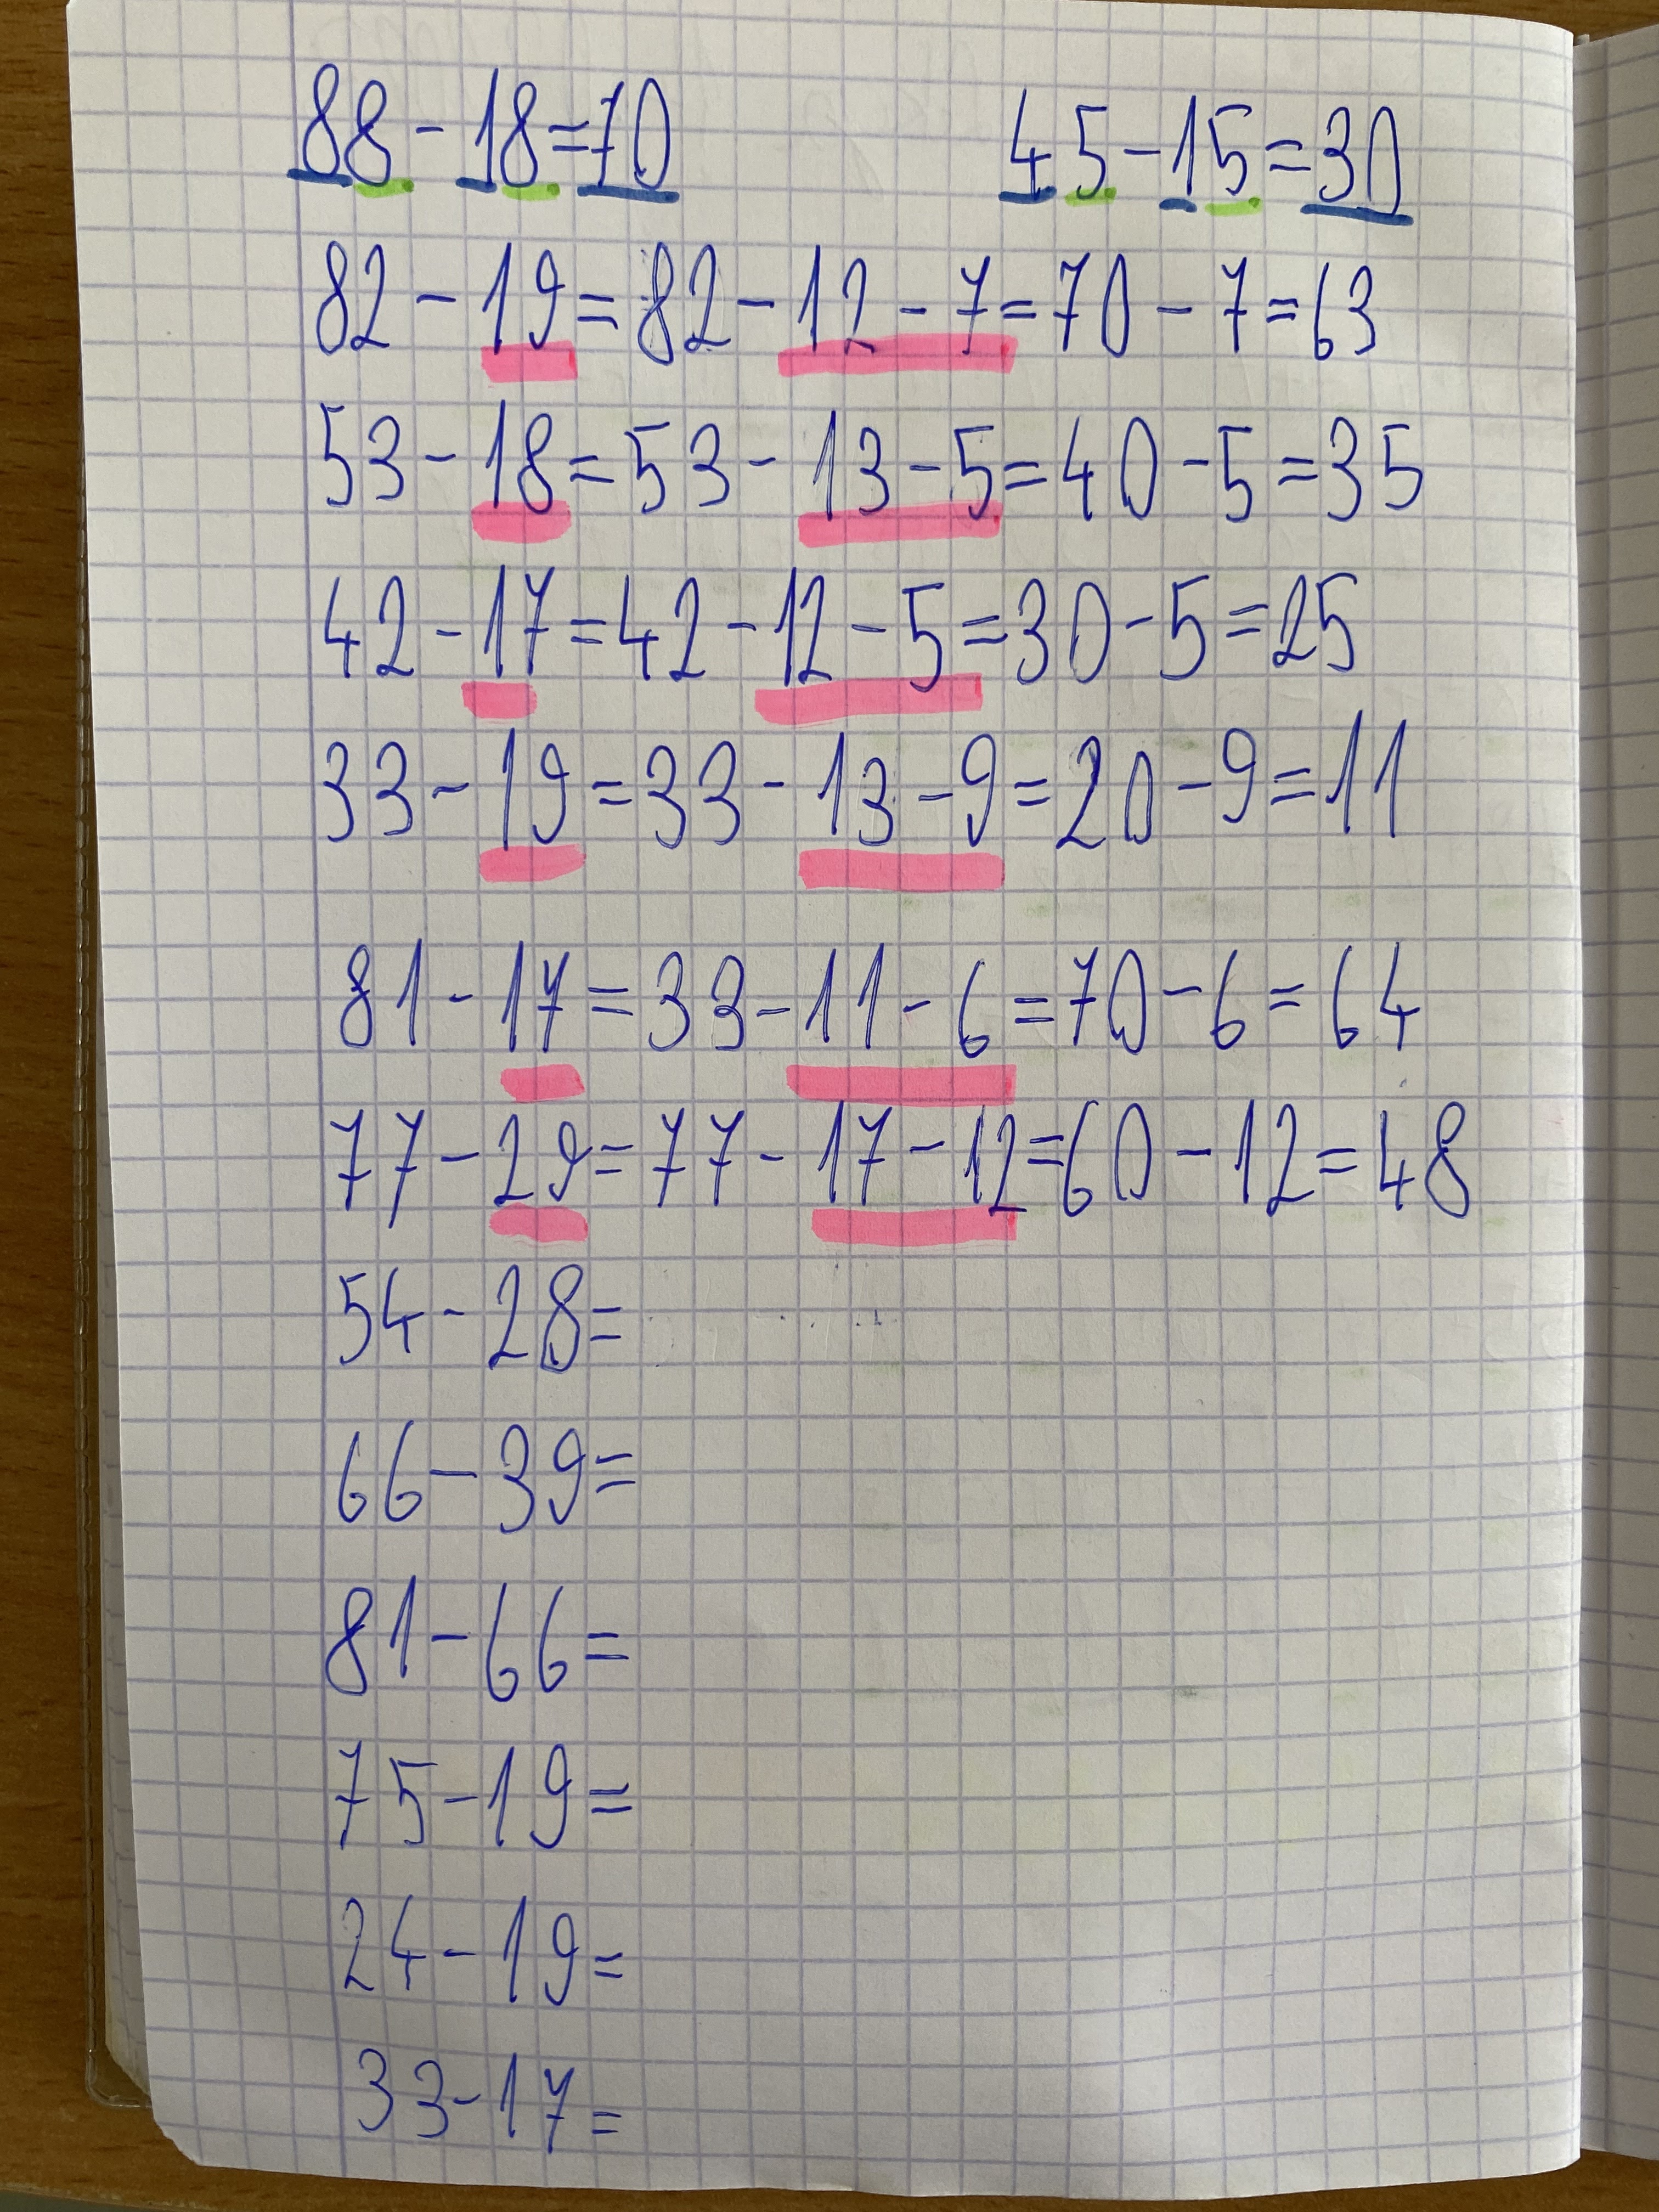 88-18=70 45-15=30
82-19=82-12-7=70-7=63
53-18=53-13-5=40-5=35
42-17=42-12-5=30-5=25
33-19=33-13-9=20-9=11
81-17=33-11-6=70-6=64
77-29=77-17-12=60-12=48
54-28=
66-39=
81-66=
75-19=
24-19=
33-17=